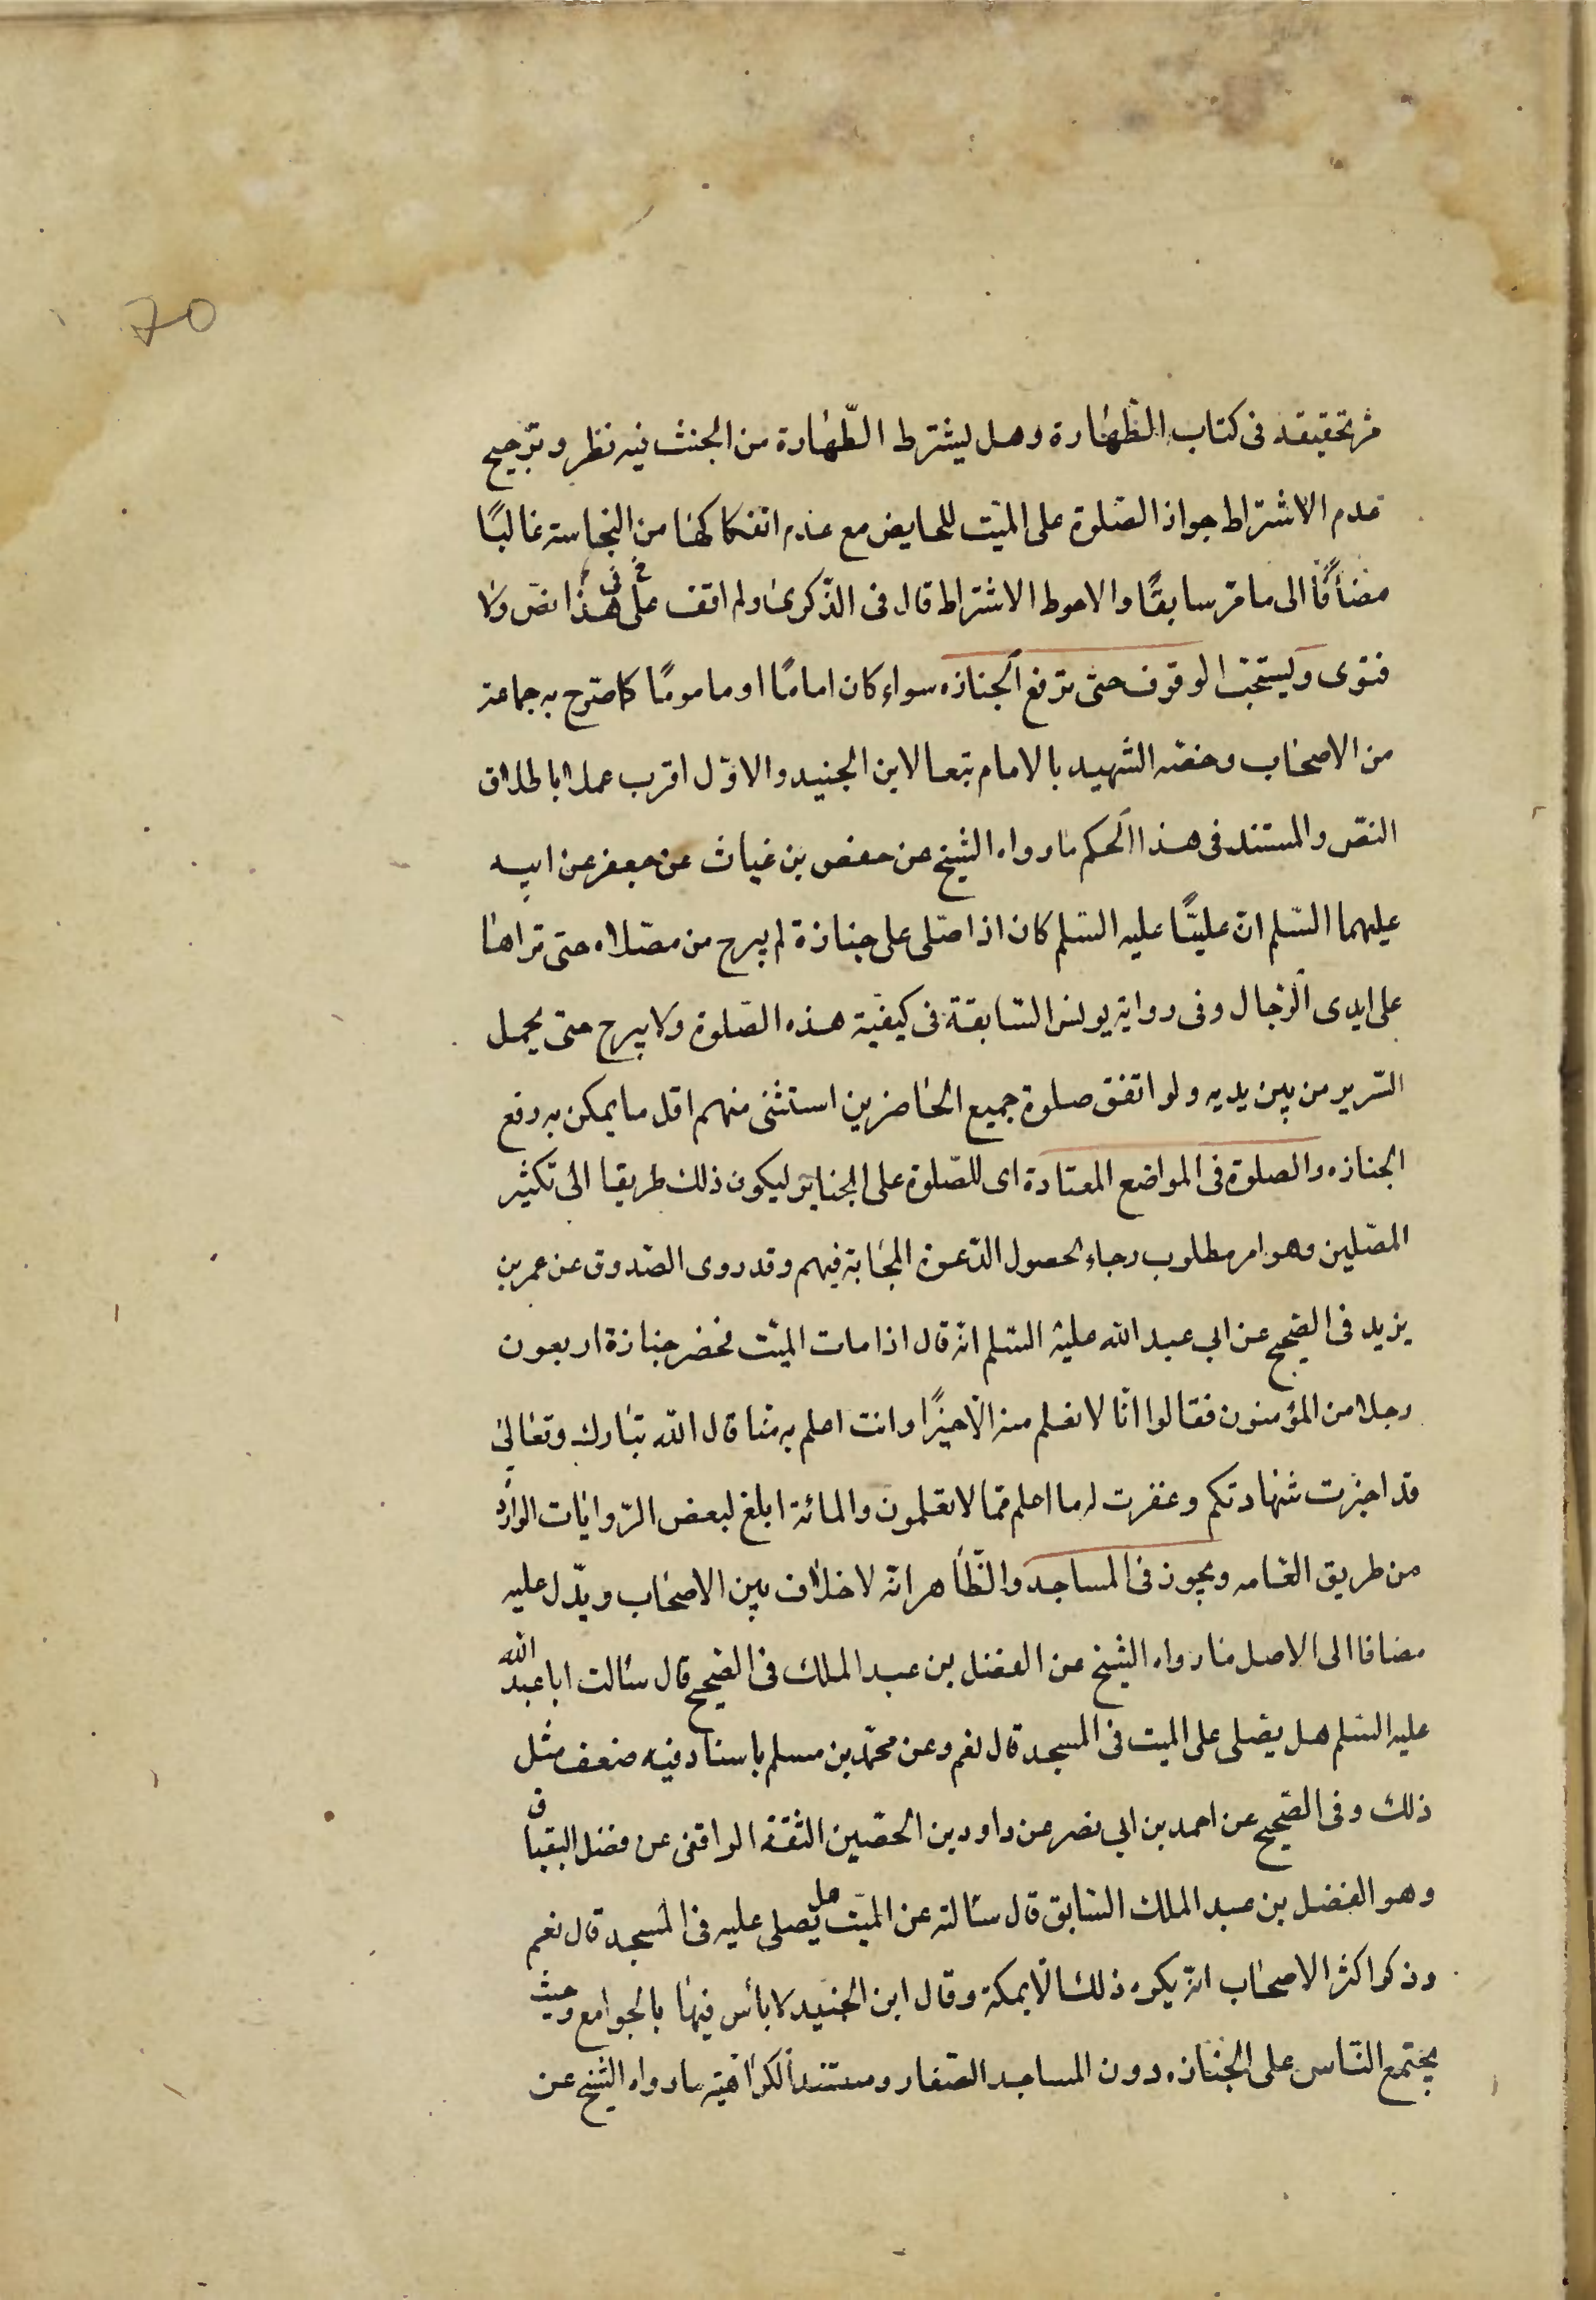 70
مر تحقيقه فى كتاب الطّهارة وهل يشترط الطّهارة من الخبث فيه نظر وترجيح
عدم الاشتراط جواز الصّلوة على الميّت للحايض مع عدم انفكاكها من النجاسة غالبًا
مضافًا الى ما مرّ سابقًا والاحوط الاشتراط قال فى الذّكرى ولم اقف على فى هذا نصّ ولا
فتوى ويستحبّ الوقوف حتى ترفع الجنازه سواء كان امامًا او مامومًا كما صرّح به جماعة
من الاصحاب وخصّه الشهيد بالامام تبعا لابن الجنيد والاوّل اقرب عملا باطلاق
النصّ والمستند فى هذا الحكم ما رواه الشيخ عن حفص بن غياث عن جعفر عن ابيه
عليهما السّلم انّ عليّا عليه السّلم كان اذا صلّى على جنازة لم يبرح من مصلاه حتى تراها
على ايدى الرّجال وفى رواية يونس السّابقة فى كيفيّة هذه الصّلوة ولا يبرح حتى يحمل
السّرير من بين يديه ولو اتفق صلوة جميع الحاضرين استثنى منهم اقل ما يمكن به رفع
الجنازه والصلوة فى المواضع المعتادة اى للصّلوة على الجنايز ليكون ذلك طريقا الى تكثير
المصّلين وهو امر مطلوب رجاء لحصول الدّعوة المجابة فيهم وقد روى الصّدوق عن عمر بن
يزيد فى الصّحيح عن ابي عبد الله عليه السّلم انّه قال اذا مات الميّت فحضر جنازة اربعون
رجلا من المؤمنون فقالوا انّا لا نعلم منه الّا خيرًا وانت اعلم به منّا قال الله تبارك وتعالىٰ
قد اجزت شهادتكم وغفرت له ما اعلم ممّا لا تعلمون والمائة ابلغ لبعض الرّوايات الوارده
من طريق العامه ويجوز فى المساجد والظّاهر انّه لا خلاف بين الاصحاب ويدّل عليه
مضافا الى الاصل ما رواه الشيخ عن الفضل بن عبد الملك فى الصّحيح قال سألت ابا عبد الله
عليه السّلم هل يصّلى على الميت فى المسجد قال نعم وعن محمّد بن مسلم باسناد فيه ضعف مثل
ذلك وفى الصّحيح عن احمد بن ابي نصر عن داود بن الحصّين الثقة الواقفى عن فضل البقباق
وهو الفضل بن عبد الملك السّابق قال سألته عن الميّت هل يّصلى عليه فى المسجد قال نعم
وذكر اكثر الاصحاب انّه يكره ذلك الّا بمكة وقال ابن الجنيد لا بأس فيها بالجوامع وحيث
يجتمع النّاس على الجنازه دون المساجد الصّغار ومستند الكراهية ما رواه الشيخ عن